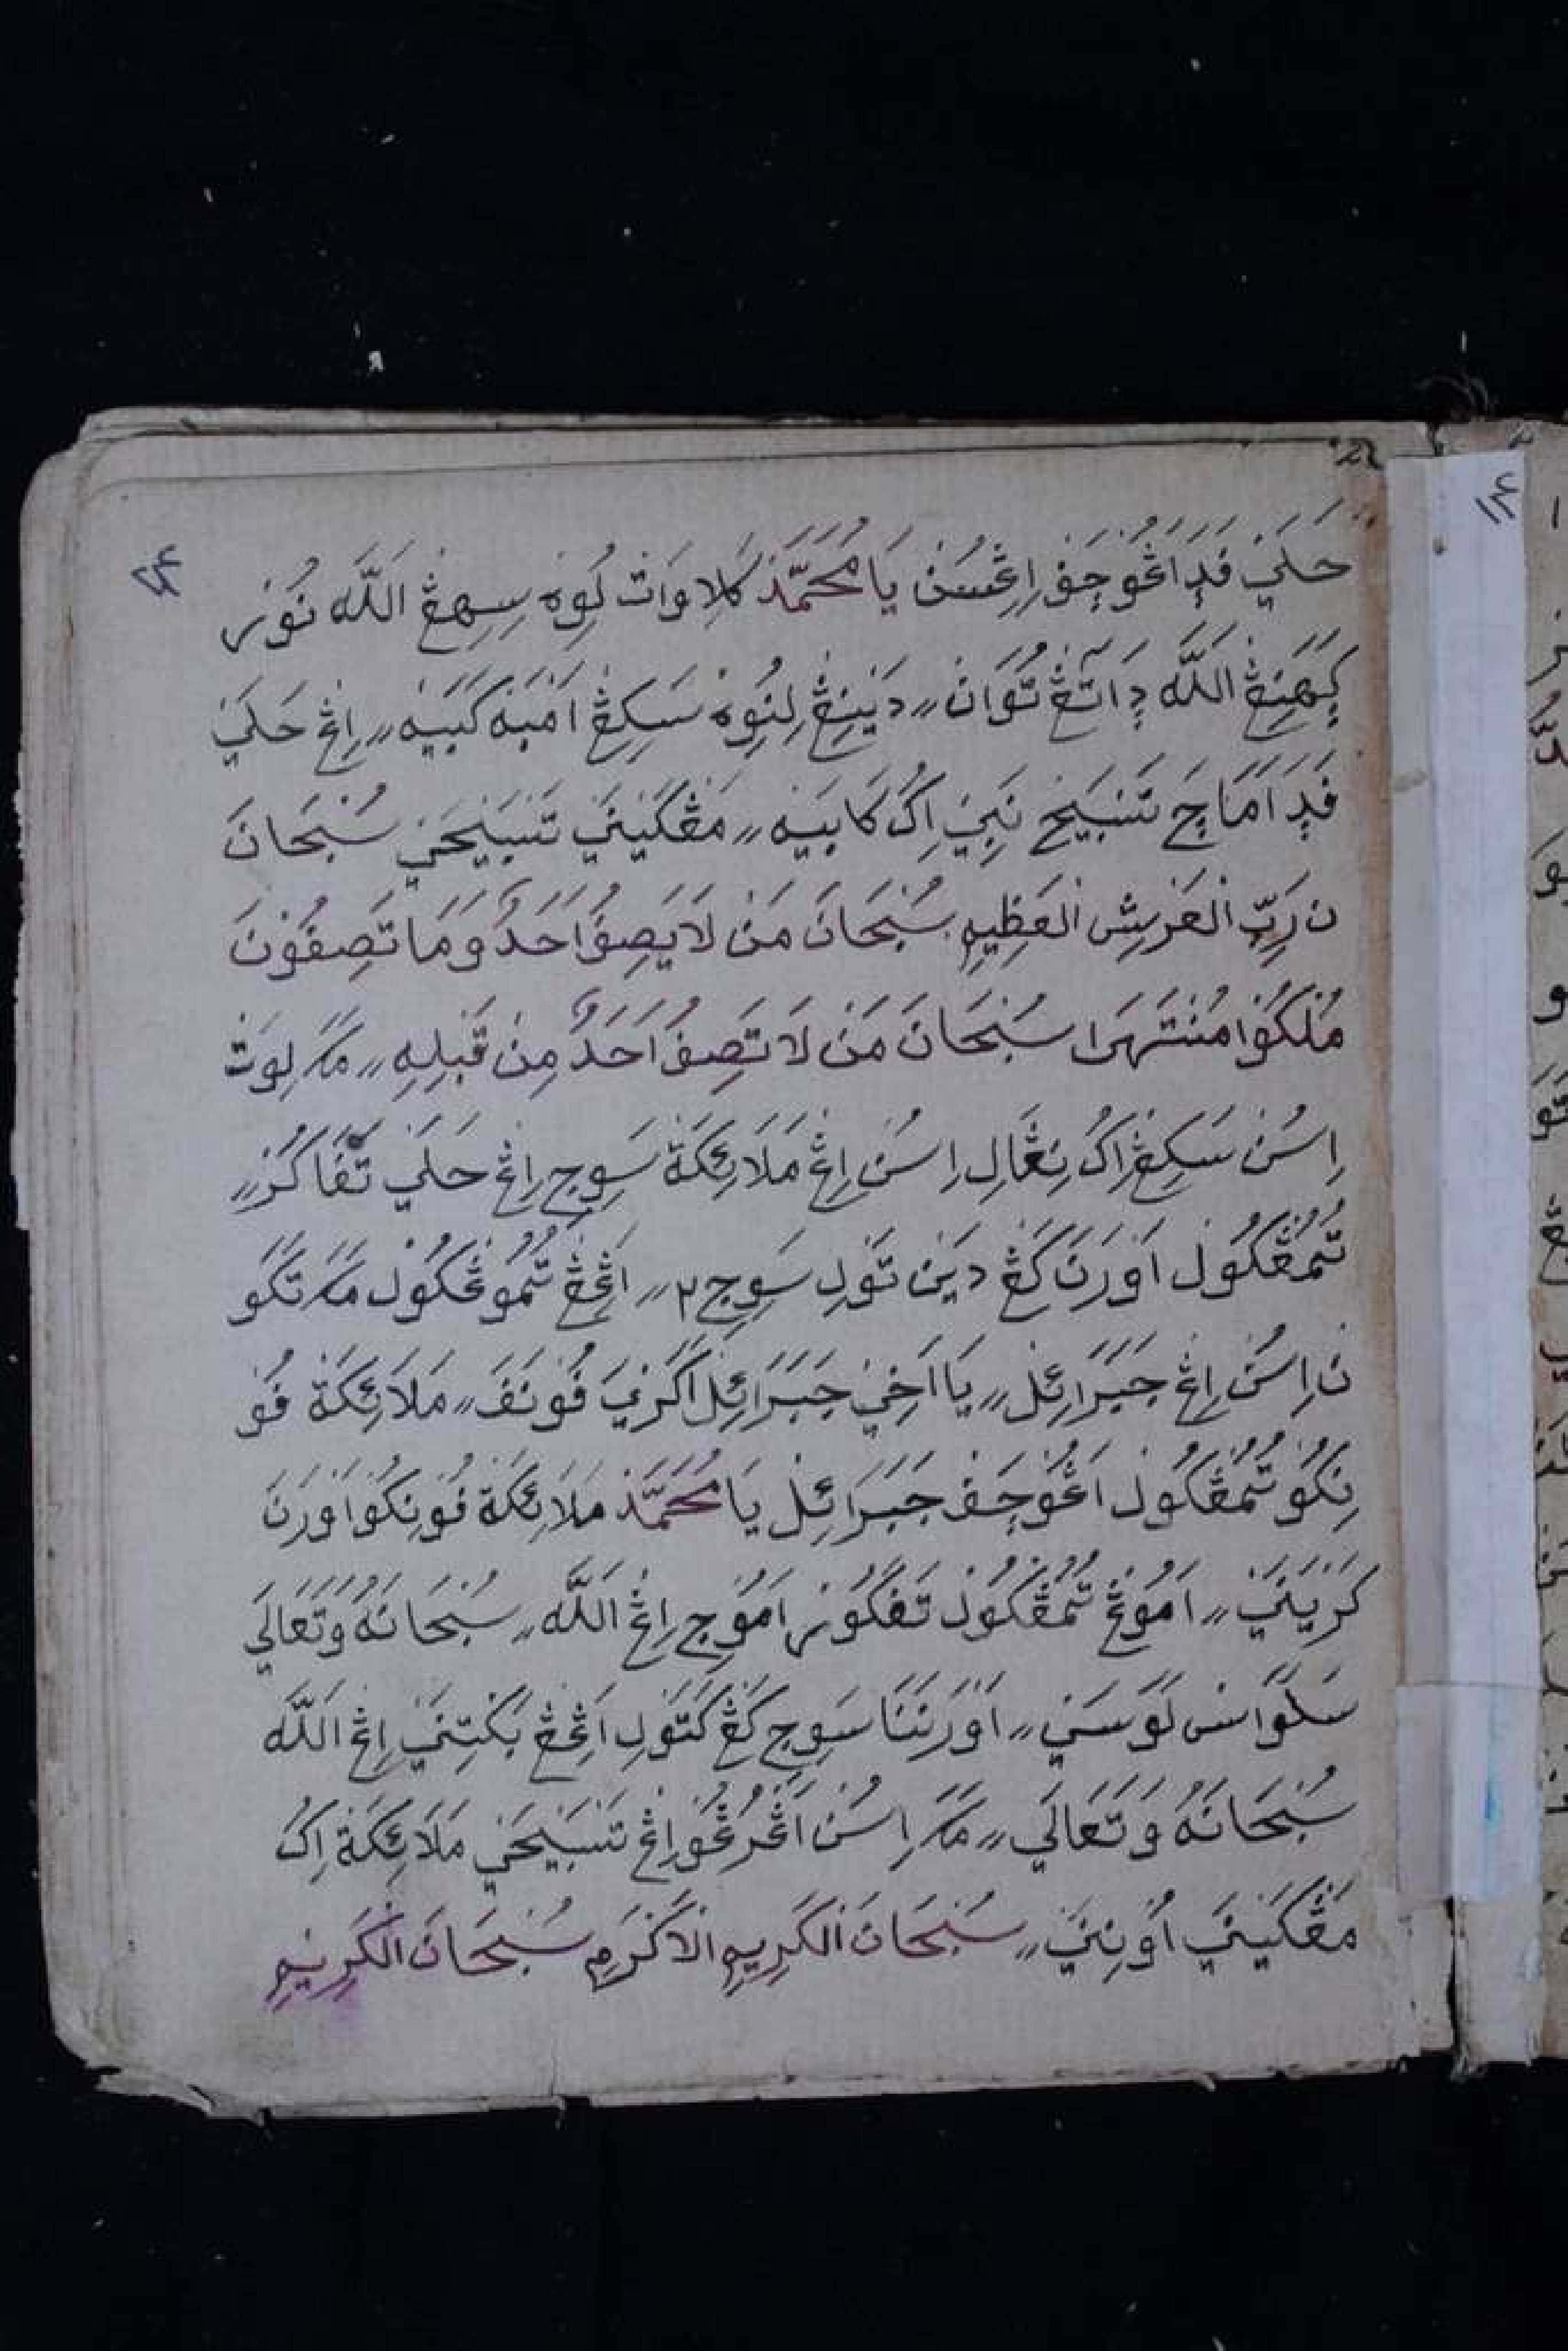 حَلَيْ فَدٖ اَڠُوچَفْ اِڠْسُنْ يَا مُحَمَّدْ كَلِاوَاتْ لُوِهْ سِهِڠْ اَللَّه نُوْنْ
كَهَنِڠْ اَللَّه دٖاتَڠْ تُوَانْ ٫٫ دَيْنِڠْ لِنُوِهْ سَكِڠْ اَمْبَهْ كَبَيْه ٫٫ اِڠْ حَلَيْ
فَدٖ اَمَاچَ تَسْبَيْحْ نَبِيْ اِكُ كَابَيْه ٫٫ مَڠْكَيْنَيْ تَسْبَيْحَيْ سُبْحَانَ
نَ رَبِّ الْعَرْشِ الْعَظِيْمِ سُبْحَانَ مَنْ لَا يَصِفُ اَحَدٌ وَمَا تَصِفُوْنَ
مُلْكُوْا مُنْتَهَرَا سُبْحَانَ مَنْ لَا تَصِفُ اَحَدٌ مِنْ قَبْلِهِ ٫٫ مَكَ لِوَتْ
اِسُنْ سَكِڠْ اِكُ نِڠَالِ اِسُنْ اِڠْ مَلَائِكَةْ سَوِجِ اِڠْ حَلَيْ تَفَاكُرْ ٫٫
تُمُڠْكُولْ اَوْرَنَ كَڠْ دَيْنْ تَوْلِ سَوِجِ٢ ٫٫ اَڠِڠْ تُمُوڠْكُولْ مَكَ تَكَو
نْ اِسُنْ اِڠْ جَبَرَائِلْ ٫٫ يَا اَخِيْ جَبَرَائِلْ اَكَرْيَ فُوْنَفَ ٫٫ مَلَائِكَةْ فُو
نِكُو تُمُڠْكُولْ اَڠُوچَفْ جَبَرَائِلْ يَا مُحَمَّدْ مَلَائِكَةْ فُوْنِكُوْ اَوْرَنَ
كَرْيَنَيْ ٫٫ اَمُوڠْ تُمُڠْكُولْ تَفَكُوْرْ اَمُوْجِ اِڠْ اَللَّه ٫٫ سُبْحَانَهُ وَتَعَالَي
سَلَوَاسْ لَوَسَيْ ٫٫ اَوْرَنَنَا سَوِجِ كَڠْ كَتَوْلِ اَڠِڠْ بَكْتِنَيْ اِڠْ اَللَّه
سُبْحَانَهُ وَتَعَالَي ٫٫ مَكَ اِسُنْ اَڠْرُڠُوْ اِڠْ تَسْبَيْحَيْ مَلَائِكَةْ اِكُ
مَڠْكَيْنَيْ اُوْنِنَيْ ٫٫ سُبْحَانَ الْكَرِيْمِ الْاَكْرَمِ سُبْحَانَ الْكَرِيْمِ